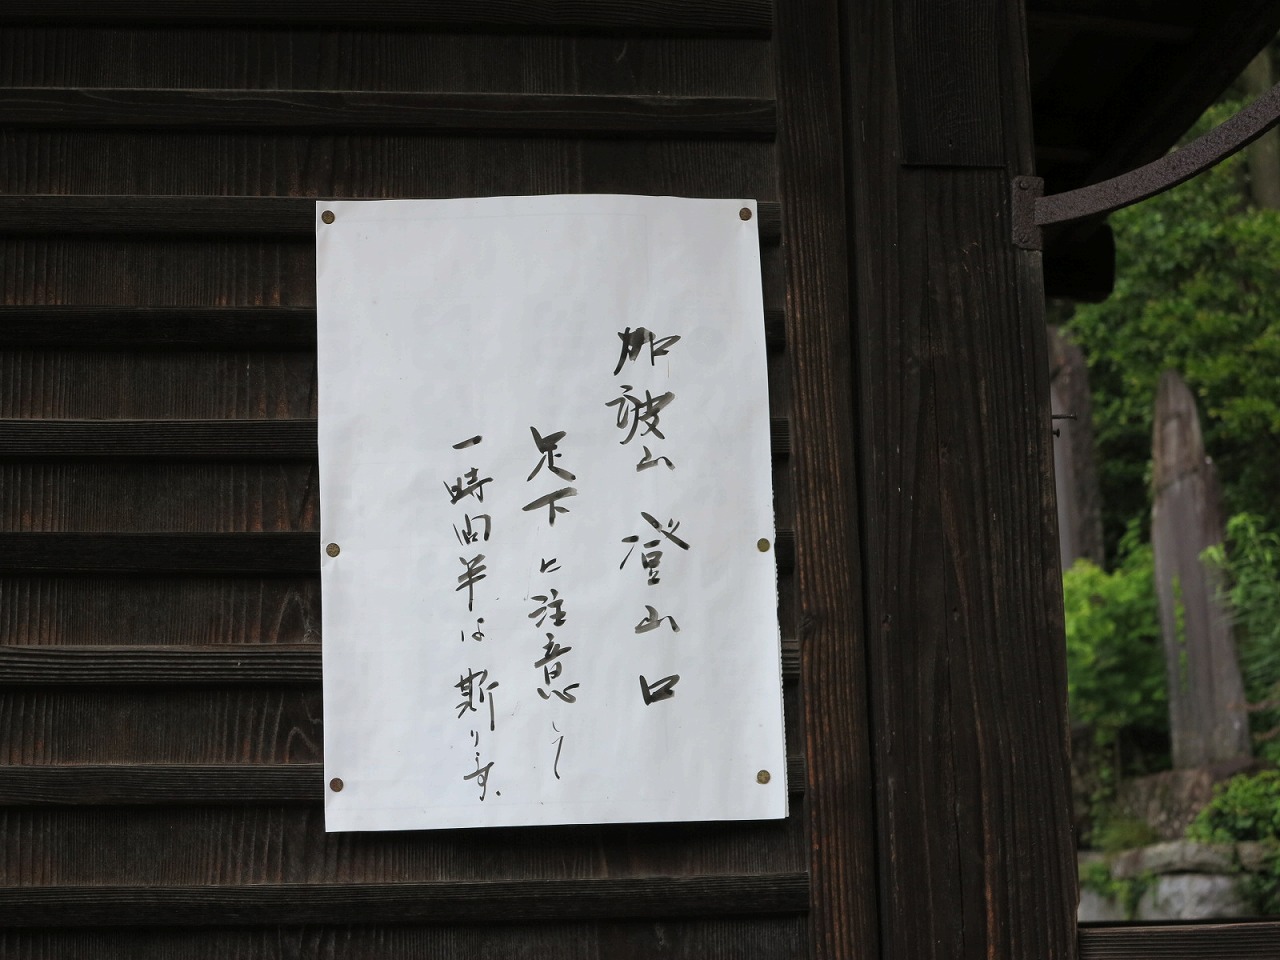 加波山 登山口
足下に注意して
一時間半は斯ります。